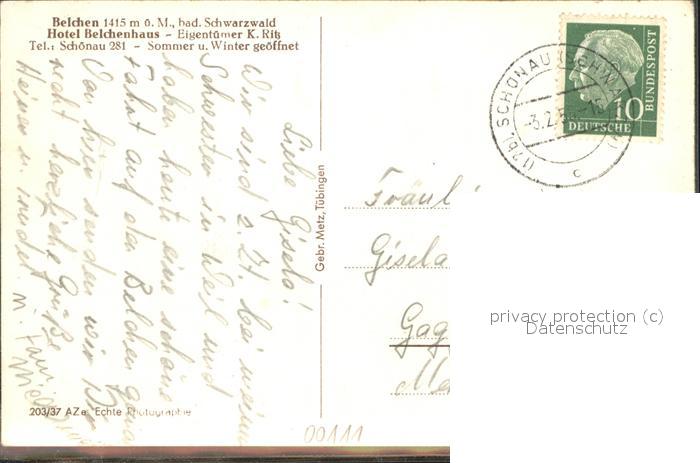 Belchen 1415 m ü. M., bad. Schwarzwald
Hotel Belchenhaus - Eigentümer K. Riß
Tel.: Schönau 281 - Sommer u. Winter geöffnet
Liebe Gisela!
Wir sind z. Zt. bei meiner
Schwester in Weil und
haben heute eine schöne
Fahrt auf den Belchen gemacht
Von hier senden wir Dir
recht herzliche Grüße
Heiner u. m. Fam.
Gebr. Metz, Tübingen
203/37 AZe Echte Photographie
00111
(17b) SCHÖNAU (SCHWARZW)
-3.2.5
c
10
DEUTSCHE
BUNDESPOST
Fräul
Gisela
Gag
privacy protection (c)
Datenschutz